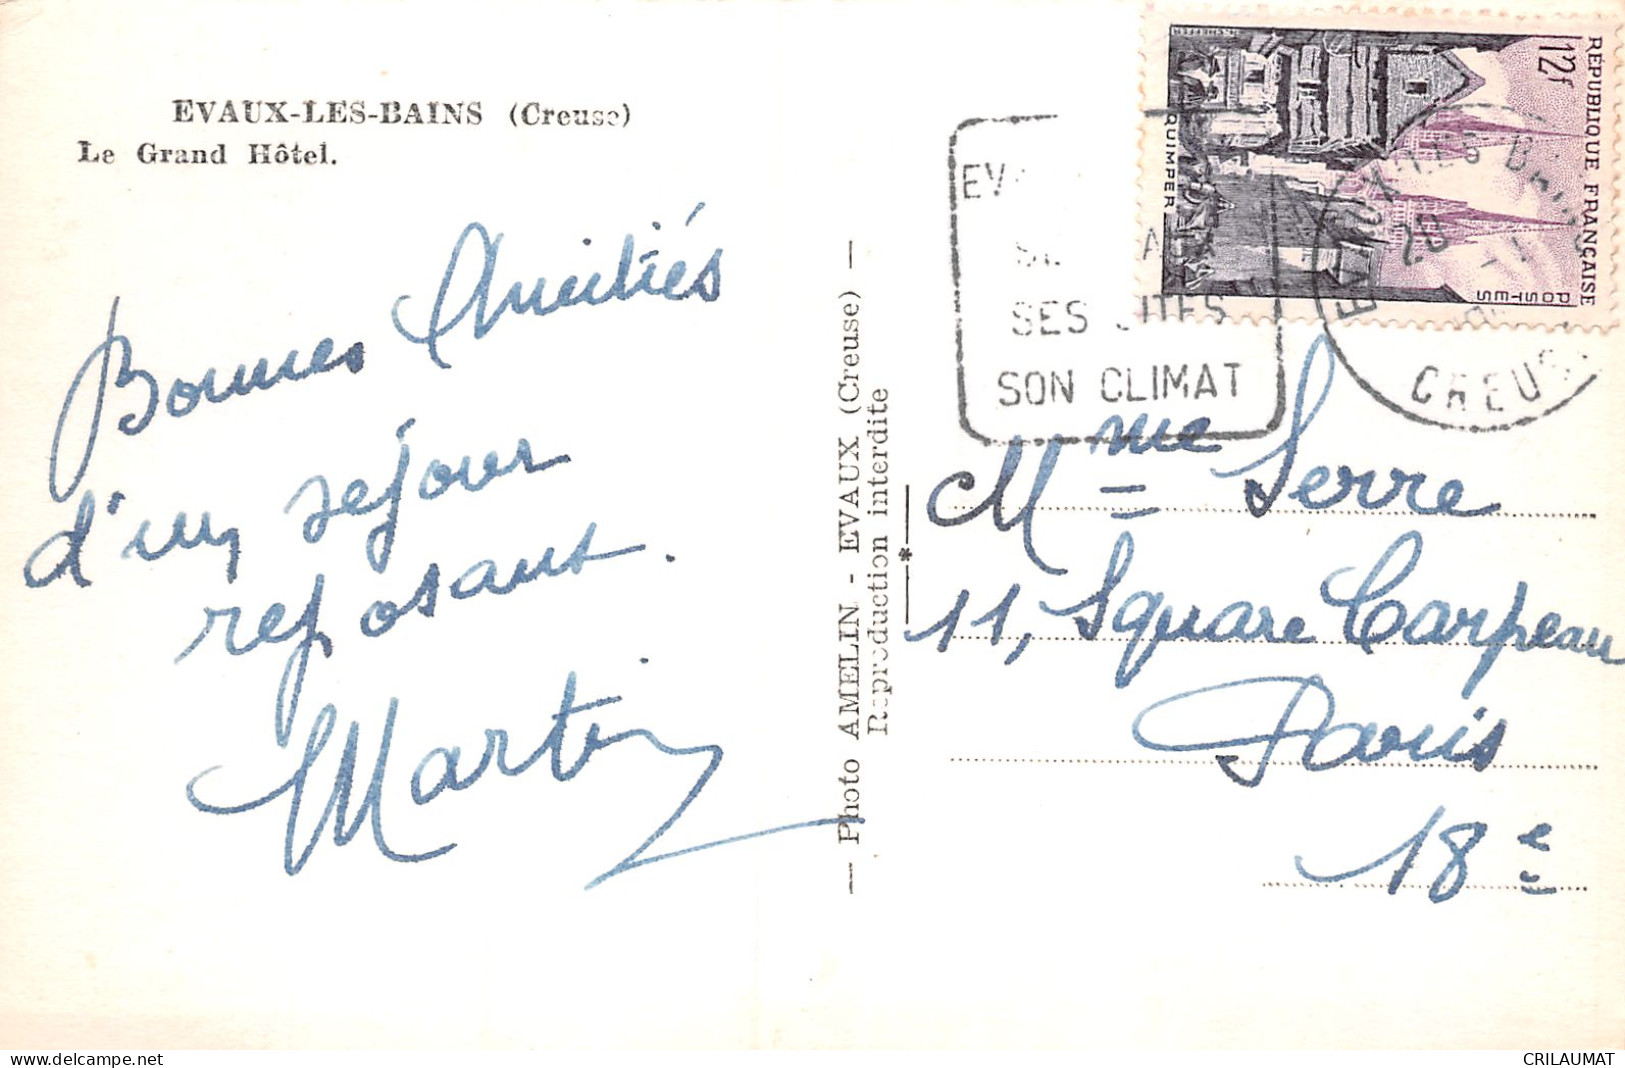 EVAUX-LES-BAINS (Creuse)
Le Grand Hôtel.
Bonnes Amitiés
d'un séjour
reposant.
Martin
— Photo AMELIN - EVAUX (Creuse) —
Reproduction interdite
RÉPUBLIQUE FRANÇAISE
POSTES
12f
QUIMPER
SES SITES
SON CLIMAT
EVAUX LES BAINS
20
CREUSE
Mme Serre
11, Square Carpeaux
Paris
18e
delcampe.net
CRILAUMAT